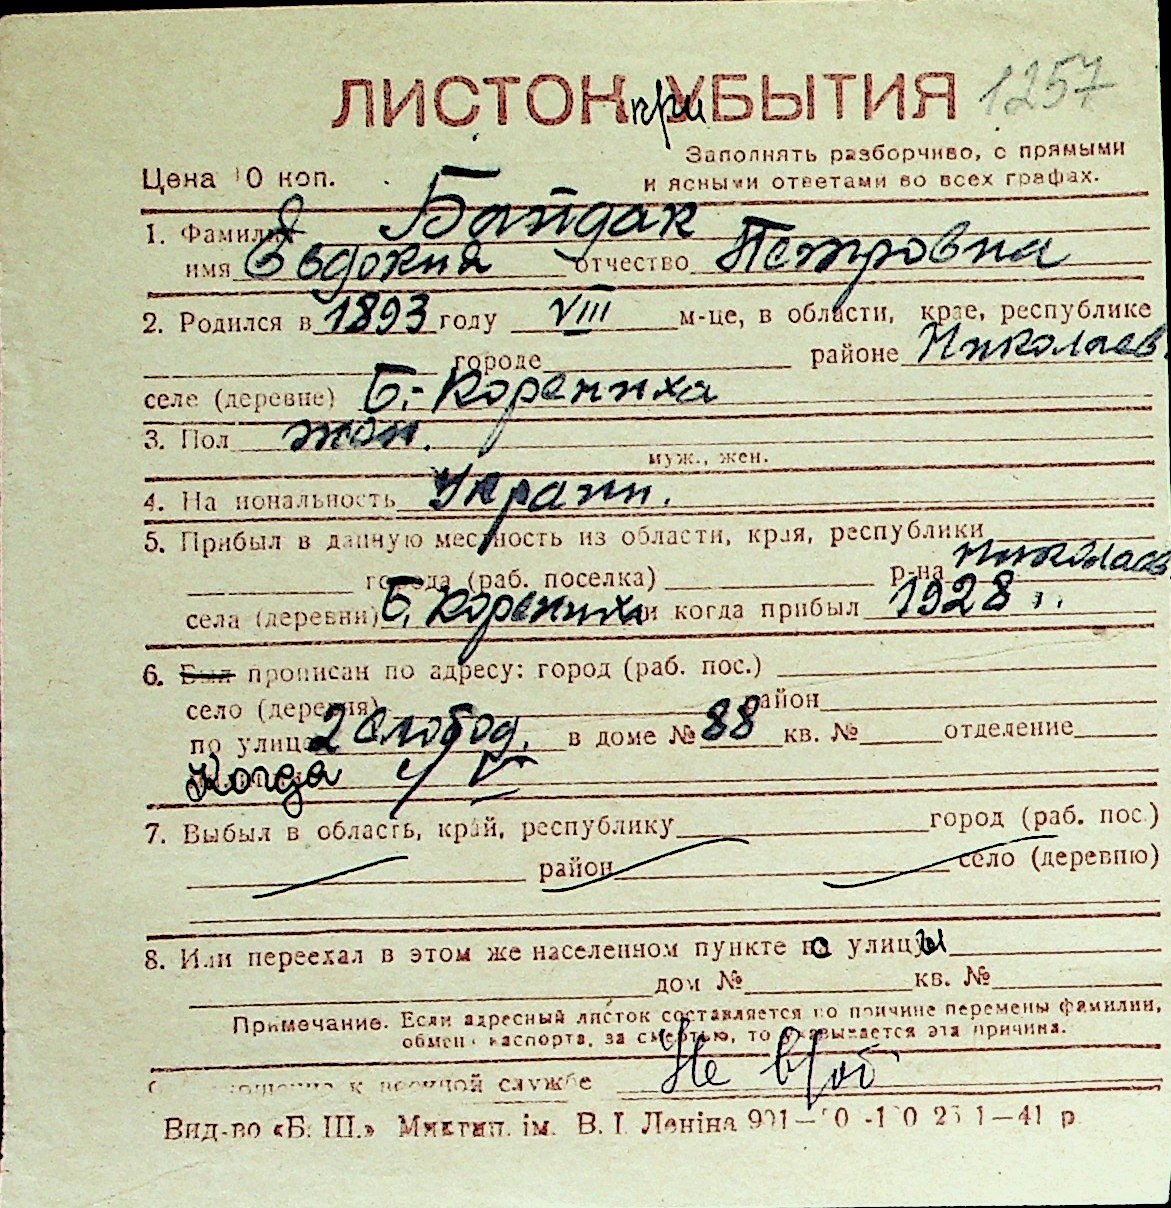 ЛИСТОК при УБЫТИЯ 1257
Заполнять разборчиво, с прямыми
Цена 10 коп. и ясными ответами во всех графах.
1. Фамилия Байдак
имя Евдокия отчество Петровна
2. Родился в 1893 году VIII м-це, в области, крае, республике
городе районе Николаев.
селе (деревне) Б.-Корениха
3. Пол жен.
муж., жен.
4. Национальность Украин.
5. Прибыл в данную местность из области, края, республики
города (раб. поселка) р-на Николаев
села (деревни) Б. Корениха и когда прибыл 1928 г.
6. Был прописан по адресу: город (раб. пос.)
село (деревня) район
по улице 2 Слобод. в доме № 88 кв. № отделение
Когда
7. Выбыл в область, край, республику город (раб. пос.)
район село (деревню)
8. Или переехал в этом же населенном пункте с улицы
дом № кв. №
Примечание. Если адресный листок составляется по причине перемены фамилии,
обмена паспорта, за смертью, то указывается эта причина.
к военной службе Не
Вид-во «Б. Ш.» Миктип. ім. В. І. Леніна 1—41 р.